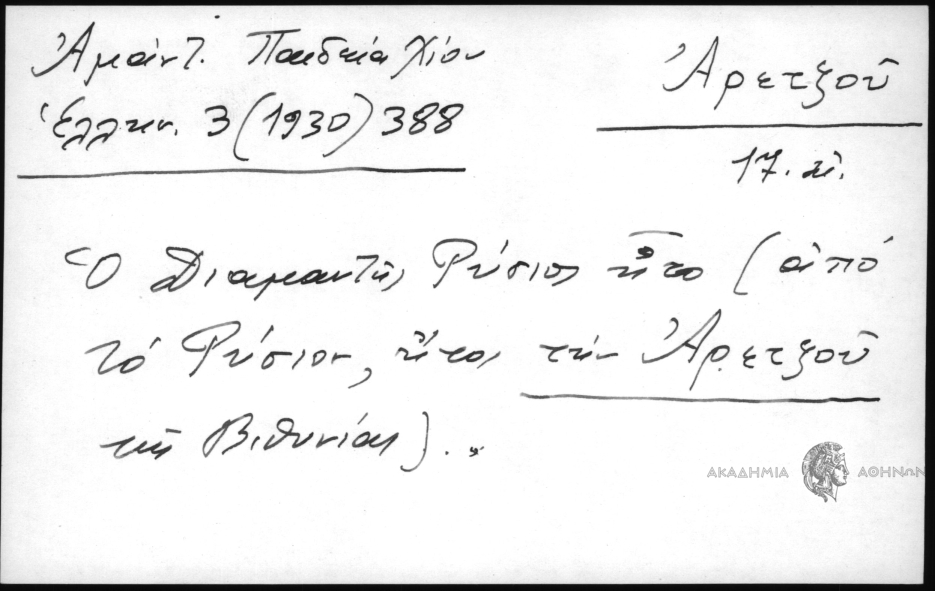 Ἀμάντ. Παιδεία Χίου
Ἑλλην. 3 (1930) 388
Ἀρετζοῦ
17. αἰ.
Ὁ Διαμαντῆς Ρύσιος ἦτο (ἀπό
τό Ρύσιον, ἤτοι τήν Ἀρετζοῦ
τῆς Βιθυνίας)...
ΑΚΑΔΗΜΙΑ ΑΘΗΝΩΝ